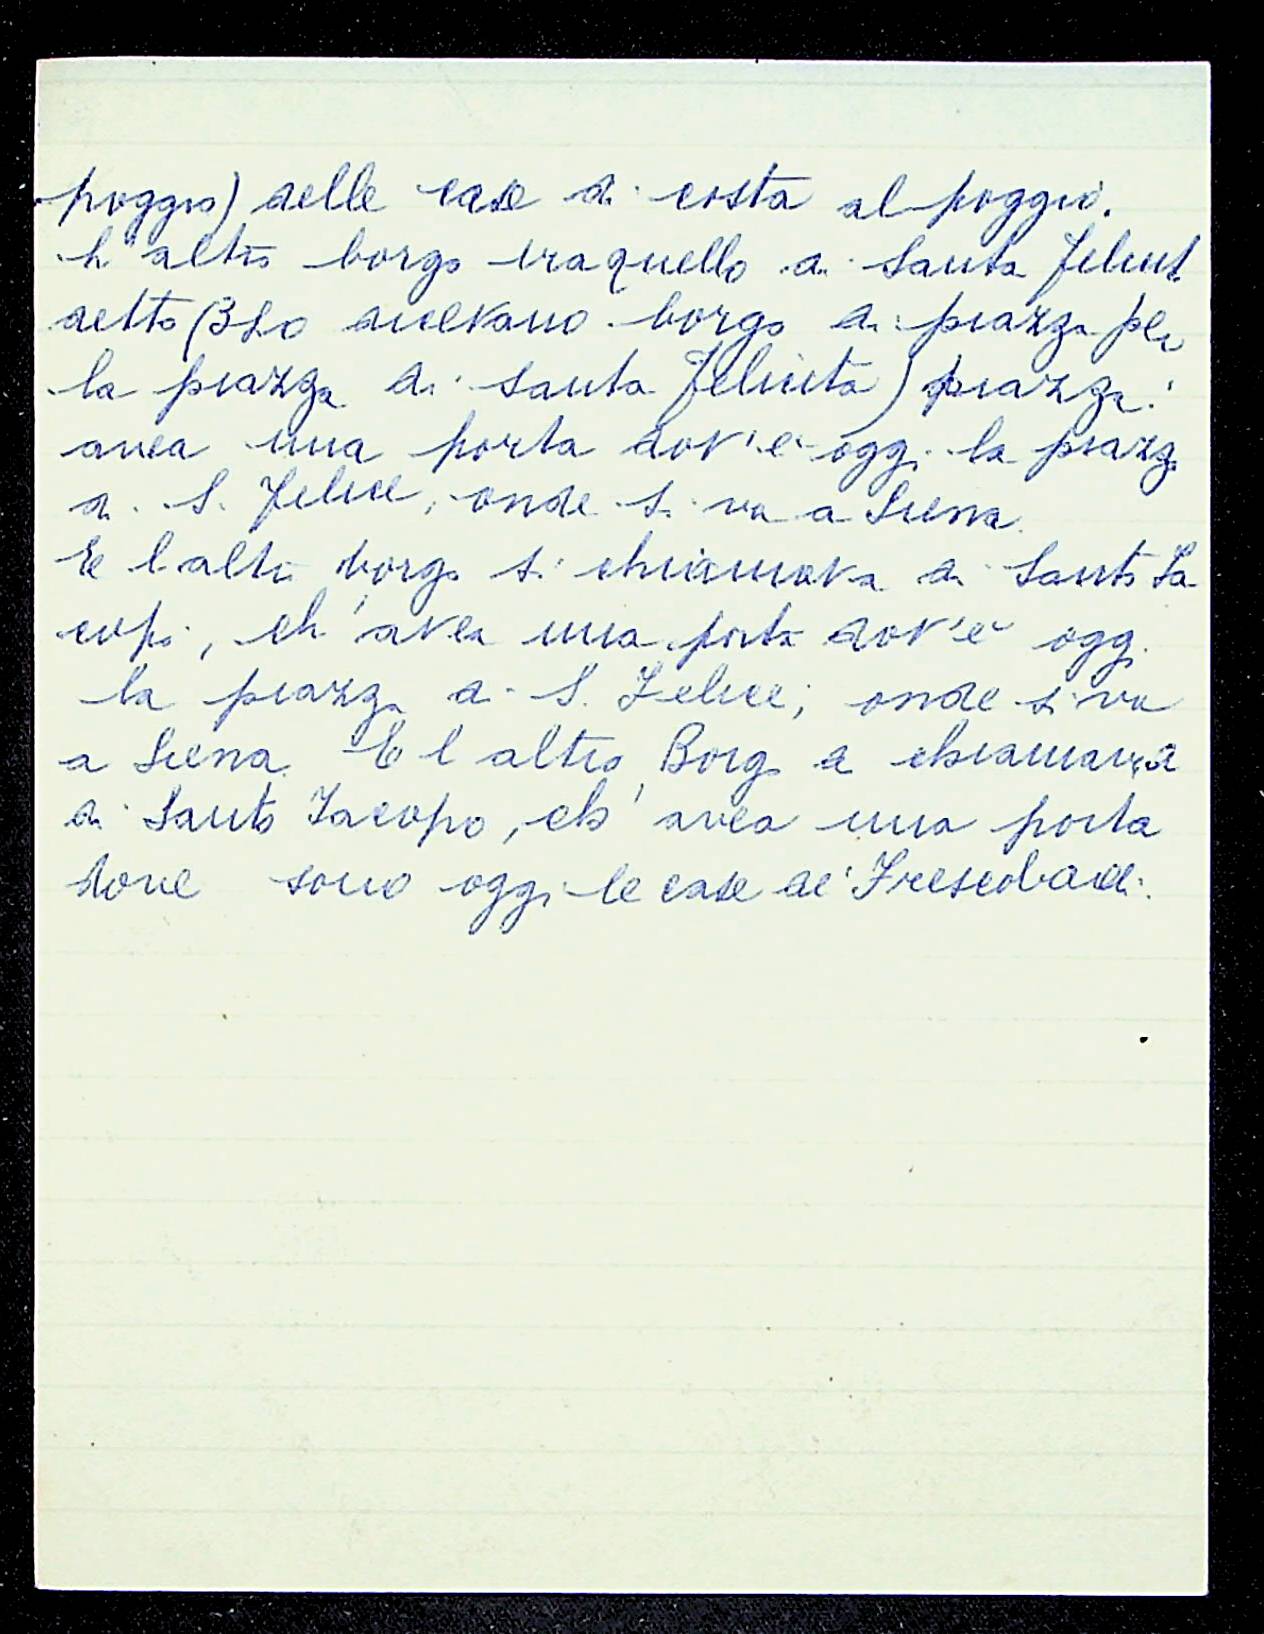 poggio) delle case di costa al poggio.
L'altro borgo era quello di Santa Felicit
detto (3 Lo dicevano borgo di piazza per
la piazza di Santa Felicita) piazza:
avea una porta dov'è oggi la piazza
di S. Felice, onde si va a Siena.
E l'altro borgo si chiamava di Santo Ia
copo, ch'avea una porta dov'è oggi
la piazza di S. Felice; onde si va
a Siena. E l altro Borgo a chiamava
di Santo Jacopo, ch'avea una porta
dove sono oggi le case de' Frescobaldi.